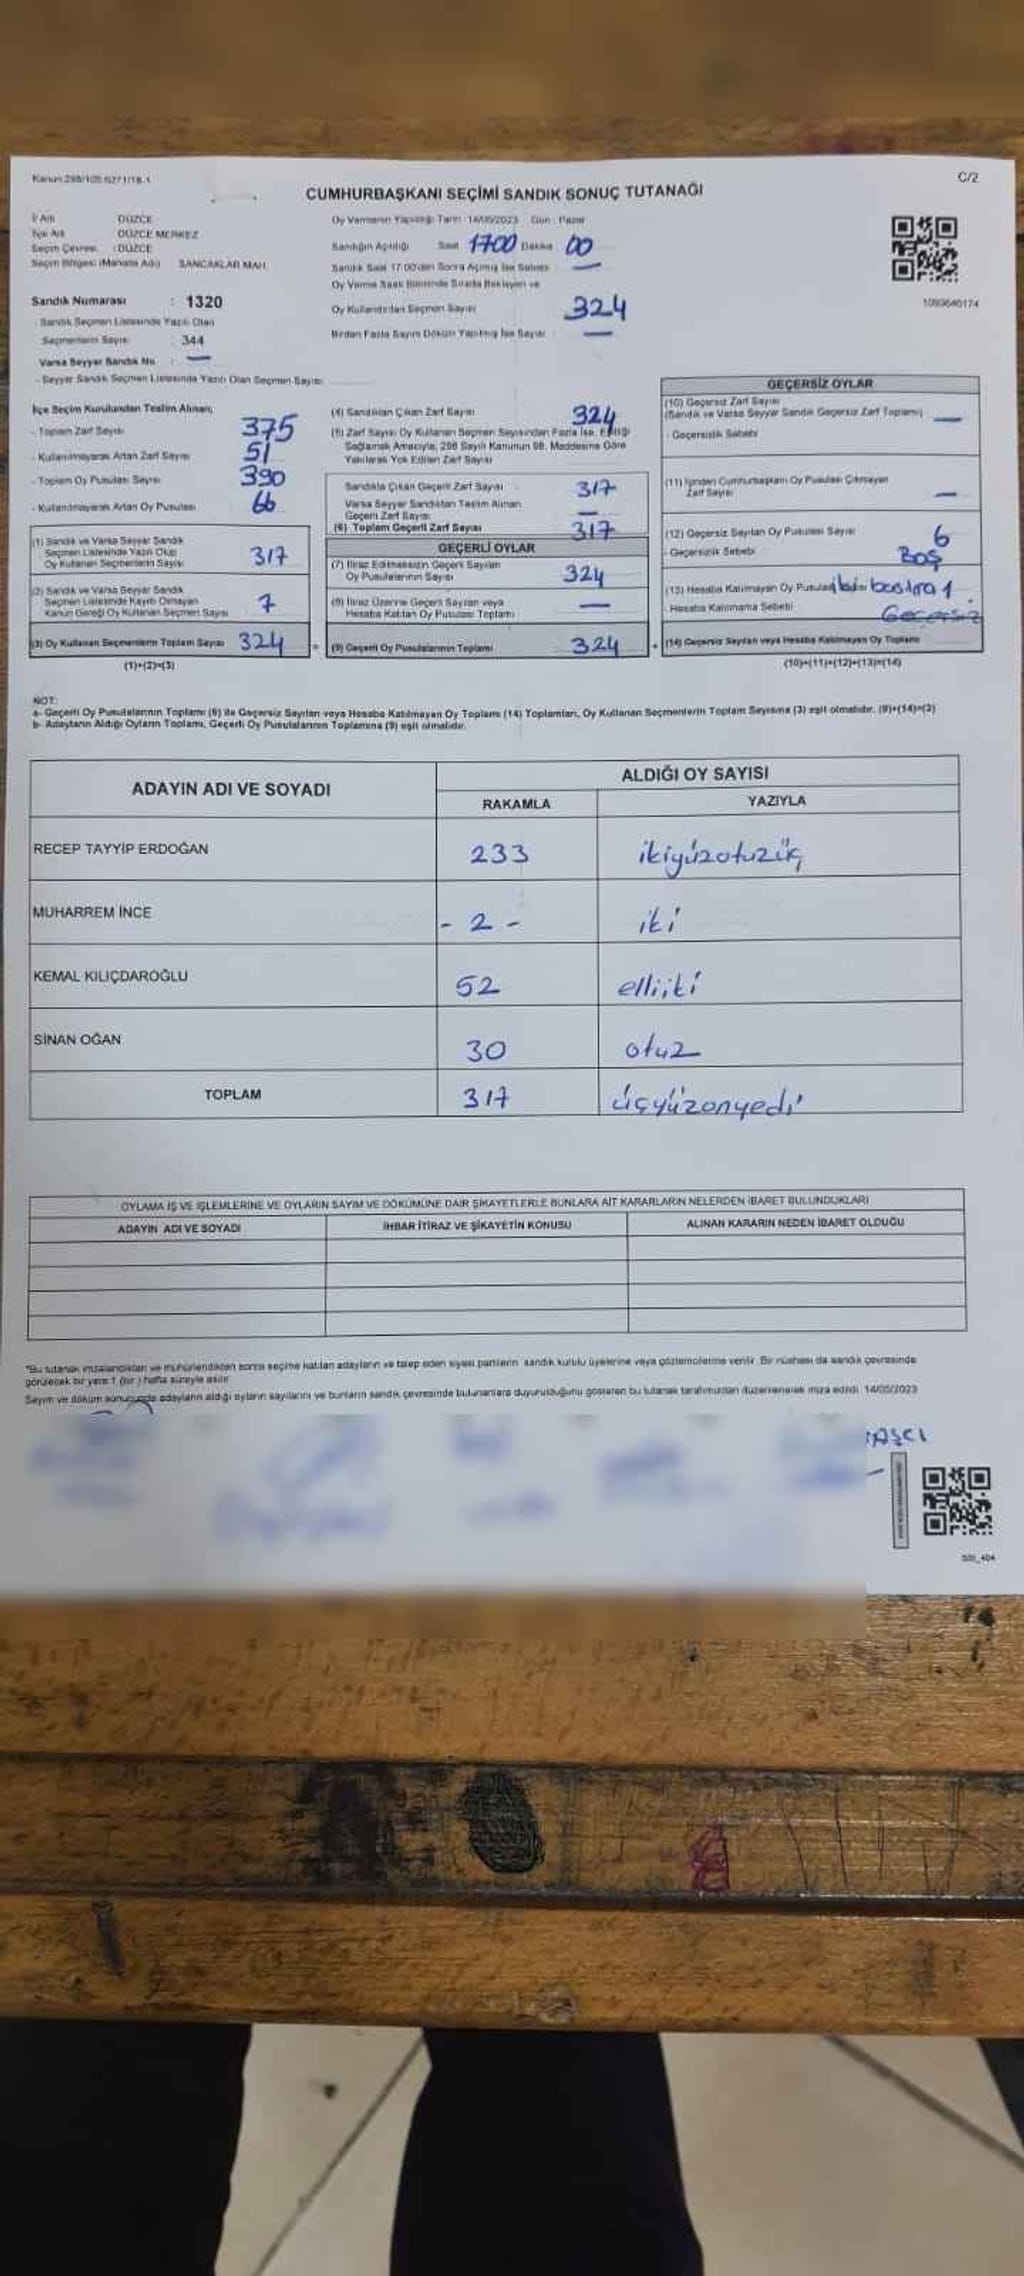 Kanun:298/105;6271/18-1
C/2
CUMHURBAŞKANI SEÇİMİ SANDIK SONUÇ TUTANAĞI
İl Adı DÜZCE
İlçe Adı DÜZCE MERKEZ
Seçim Çevresi : DÜZCE
Seçim Bölgesi (Mahalle Adı) SANCAKLAR MAH.
Sandık Numarası : 1320
- Sandık Seçmen Listesinde Yazılı Olan
Seçmenlerin Sayısı : 344
Varsa Seyyar Sandık No : —
- Seyyar Sandık Seçmen Listesinde Yazılı Olan Seçmen Sayısı
Oy Vermenin Yapıldığı Tarih : 14/05/2023 Gün : Pazar
Sandığın Açıldığı Saat 1700 Dakika 00
Sandık Saat 17:00'den Sonra Açılmış İse Sebebi —
Oy Verme Saati Bitiminde Sırada Bekleyen ve
Oy Kullandırılan Seçmen Sayısı 324
Birden Fazla Sayım Döküm Yapılmış İse Sayısı : —
1093640174
İlçe Seçim Kurulundan Teslim Alınan;
- Toplam Zarf Sayısı 375
- Kullanılmayarak Artan Zarf Sayısı 51
- Toplam Oy Pusulası Sayısı 390
- Kullanılmayarak Artan Oy Pusulası 66
(1) Sandık ve Varsa Seyyar Sandık
Seçmen Listesinde Yazılı Olup
Oy Kullanan Seçmenlerin Sayısı 317
(2) Sandık ve Varsa Seyyar Sandık
Seçmen Listesinde Kayıtlı Olmayan
Kanun Gereği Oy Kullanan Seçmen Sayısı 7
(3) Oy Kullanan Seçmenlerin Toplam Sayısı 324
(1)+(2)=(3)
(4) Sandıktan Çıkan Zarf Sayısı 324
(5) Zarf Sayısı Oy Kullanan Seçmen Sayısından Fazla İse, Eşitliği
Sağlamak Amacıyla, 298 Sayılı Kanunun 98. Maddesine Göre
Yakılarak Yok Edilen Zarf Sayısı
Sandıkta Çıkan Geçerli Zarf Sayısı 317
Varsa Seyyar Sandıktan Teslim Alınan
Geçerli Zarf Sayısı —
(6) Toplam Geçerli Zarf Sayısı 317
GEÇERLİ OYLAR
(7) İtiraz Edilmeksizin Geçerli Sayılan
Oy Pusulalarının Sayısı 324
(8) İtiraz Üzerine Geçerli Sayılan veya
Hesaba Katılan Oy Pusulası Toplamı —
= (9) Geçerli Oy Pusulalarının Toplamı 324
GEÇERSİZ OYLAR
(10) Geçersiz Zarf Sayısı
(Sandık ve Varsa Seyyar Sandık Geçersiz Zarf Toplamı) —
- Geçersizlik Sebebi
(11) İçinden Cumhurbaşkanı Oy Pusulası Çıkmayan
Zarf Sayısı —
(12) Geçersiz Sayılan Oy Pusulası Sayısı 6
- Geçersizlik Sebebi BOŞ
(13) Hesaba Katılmayan Oy Pusulası 1
- Hesaba Katılmama Sebebi Geçersiz
+ (14) Geçersiz Sayılan veya Hesaba Katılmayan Oy Toplamı
(10)+(11)+(12)+(13)=(14)
NOT:
a- Geçerli Oy Pusulalarının Toplamı (9) ile Geçersiz Sayılan veya Hesaba Katılmayan Oy Toplamı (14) Toplamları, Oy Kullanan Seçmenlerin Toplam Sayısına (3) eşit olmalıdır. (9)+(14)=(3)
b- Adayların Aldığı Oyların Toplamı, Geçerli Oy Pusulalarının Toplamına (9) eşit olmalıdır.
ADAYIN ADI VE SOYADI
ALDIĞI OY SAYISI
RAKAMLA YAZIYLA
RECEP TAYYİP ERDOĞAN 233 ikiyüzotuzüç
MUHARREM İNCE - 2 - iki
KEMAL KILIÇDAROĞLU 52 elliiki
SİNAN OĞAN 30 otuz
TOPLAM 317 üçyüzonyedi
OYLAMA İŞ VE İŞLEMLERİNE VE OYLARIN SAYIM VE DÖKÜMÜNE DAİR ŞİKAYETLERLE BUNLARA AİT KARARLARIN NELERDEN İBARET BULUNDUKLARI
ADAYIN ADI VE SOYADI İHBAR İTİRAZ VE ŞİKAYETİN KONUSU ALINAN KARARIN NEDEN İBARET OLDUĞU
*Bu tutanak imzalandıktan ve mühürlendikten sonra seçime katılan adayların ve talep eden siyasi partilerin sandık kurulu üyelerine veya gözlemcilerine verilir. Bir nüshası da sandık çevresinde
görülecek bir yere 1 (bir) hafta süreyle asılır.
Sayım ve döküm sonucunda adayların aldığı oyların sayılarını ve bunların sandık çevresinde bulunanlara duyurulduğunu gösteren bu tutanak tarafımızdan düzenlenerek imza edildi. 14/05/2023
TAŞCI